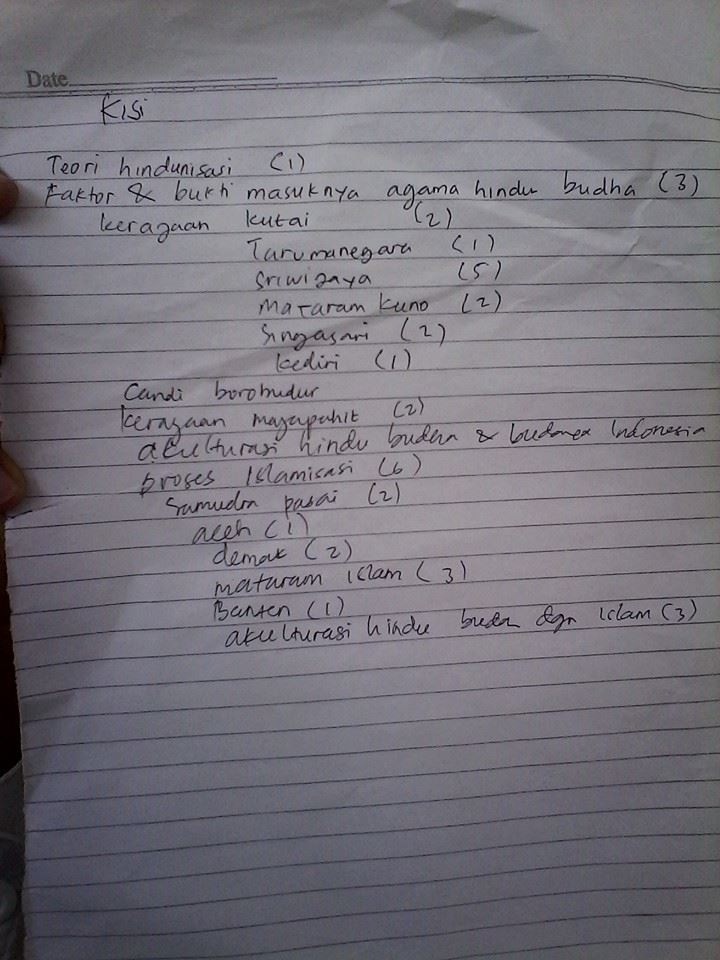 Date
Kisi
Teori hindunisasi (1)
Faktor & bukti masuknya agama hindu budha (3)
kerajaan kutai (2)
Tarumanegara (1)
Sriwijaya (5)
Mataram kuno (2)
Singasari (2)
kediri (1)
Candi borobudur
kerajaan majapahit (2)
akulturasi hindu budha & budaya Indonesia
proses Islamisasi (6)
Samudra pasai (2)
aceh (1)
demak (2)
mataram Islam (3)
Banten (1)
akulturasi hindu buda dgn Islam (3)